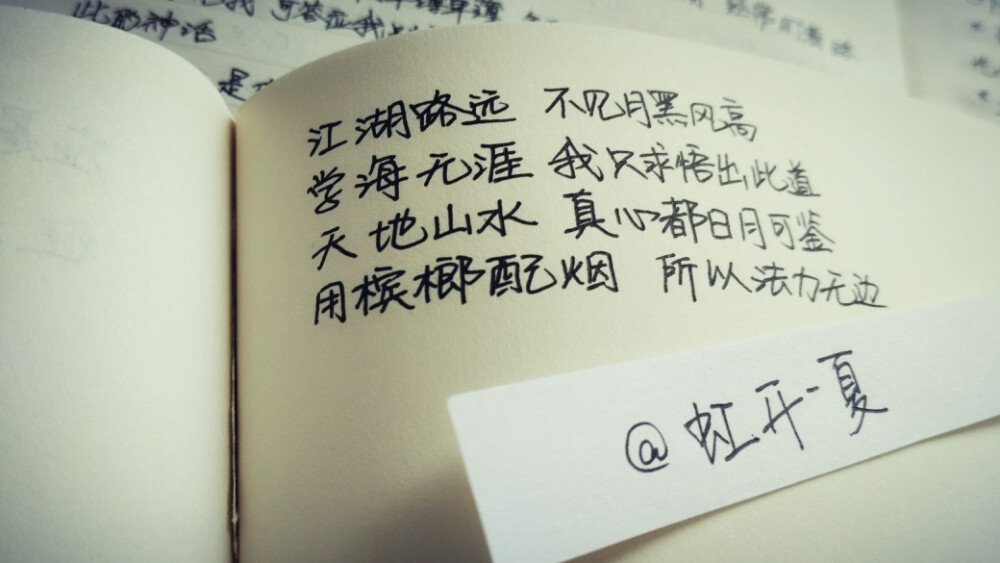 此的神话
是
江湖路远 不见月黑风高
学海无涯 我只求悟出此道
天地山水 真心都日月可鉴
用槟榔配烟 所以法力无边
@虹开一夏